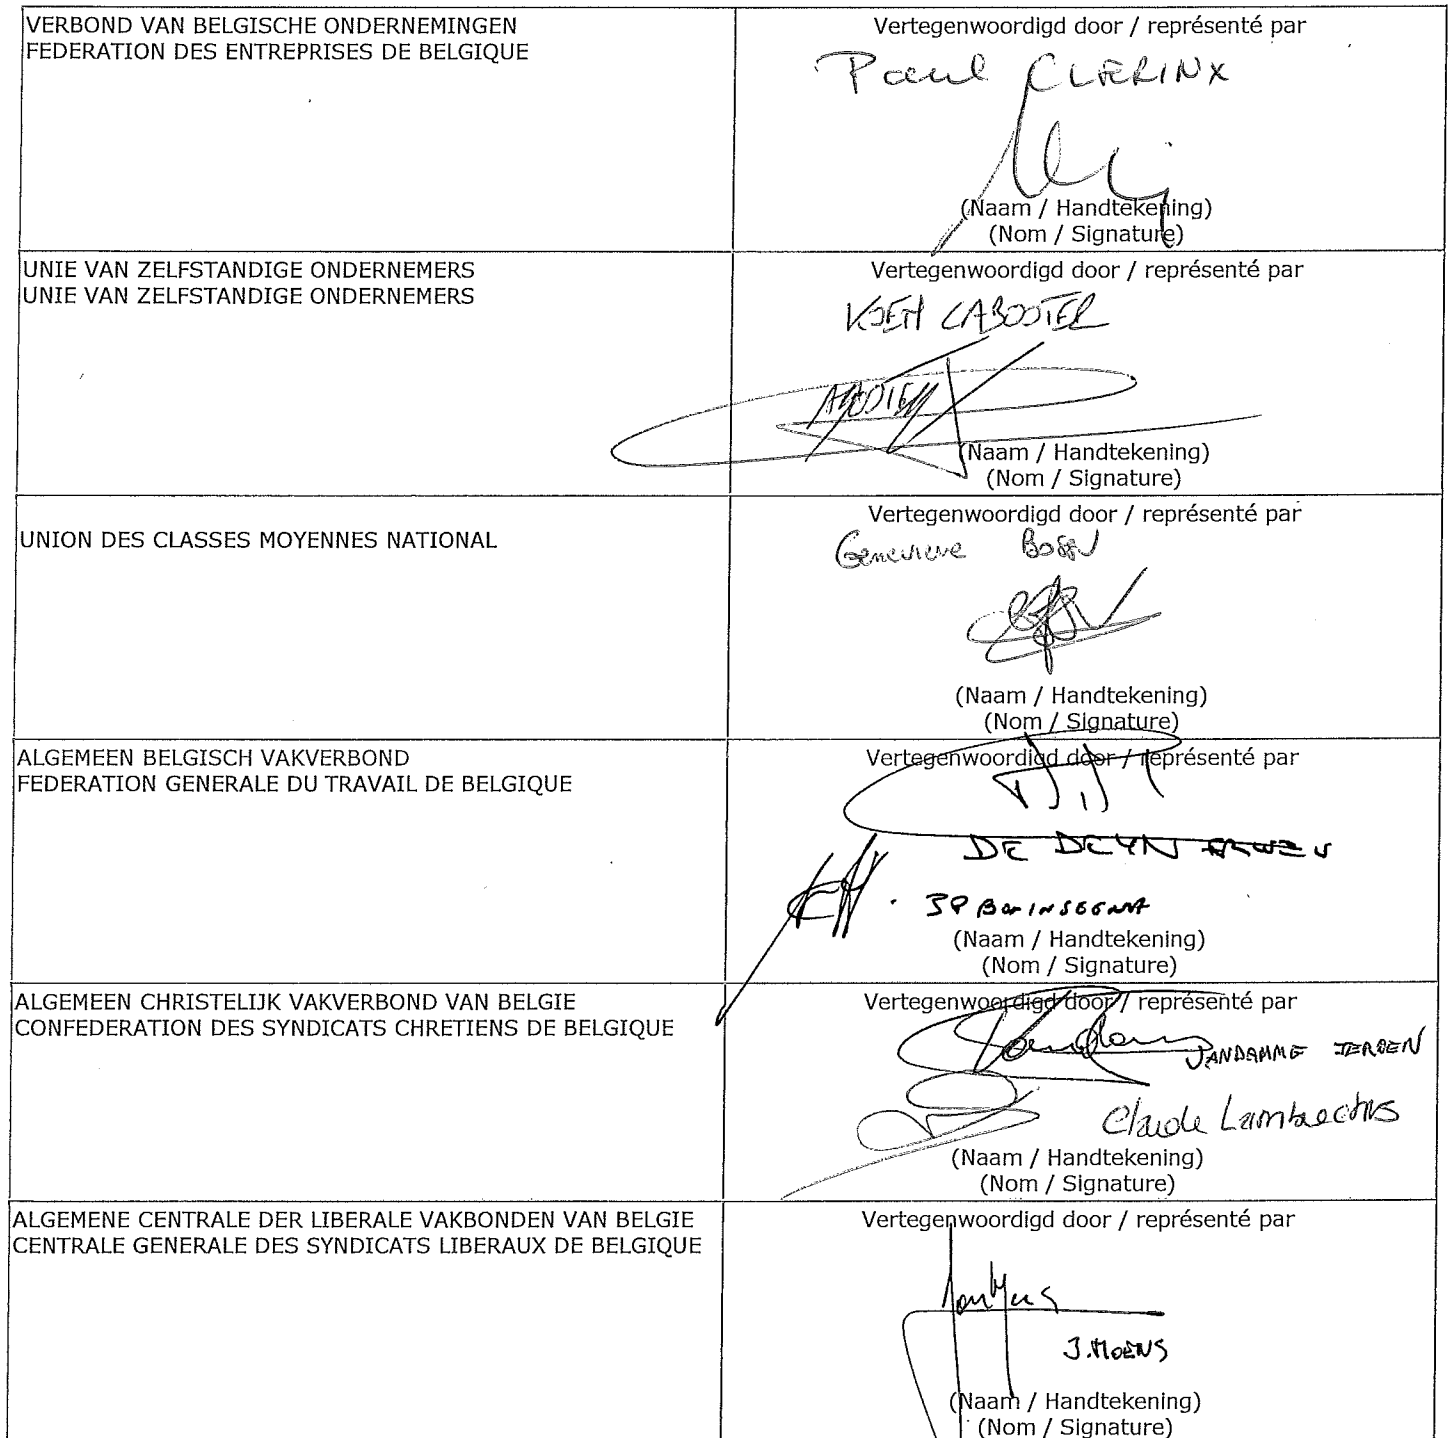 VERBOND VAN BELGISCHE ONDERNEMINGEN
FEDERATION DES ENTREPRISES DE BELGIQUE
Vertegenwoordigd door / représenté par
Paul CLERINX
(Naam / Handtekening)
(Nom / Signature)
UNIE VAN ZELFSTANDIGE ONDERNEMERS
UNIE VAN ZELFSTANDIGE ONDERNEMERS
Vertegenwoordigd door / représenté par
KOEN CABOOTER
(Naam / Handtekening)
(Nom / Signature)
UNION DES CLASSES MOYENNES NATIONAL
Vertegenwoordigd door / représenté par
Geneviève
(Naam / Handtekening)
(Nom / Signature)
ALGEMEEN BELGISCH VAKVERBOND
FEDERATION GENERALE DU TRAVAIL DE BELGIQUE
Vertegenwoordigd door / représenté par
DE DEYN
JP
(Naam / Handtekening)
(Nom / Signature)
ALGEMEEN CHRISTELIJK VAKVERBOND VAN BELGIE
CONFEDERATION DES SYNDICATS CHRETIENS DE BELGIQUE
Vertegenwoordigd door / représenté par
VANDAMME JEROEN
Claude Lambrechts
(Naam / Handtekening)
(Nom / Signature)
ALGEMENE CENTRALE DER LIBERALE VAKBONDEN VAN BELGIE
CENTRALE GENERALE DES SYNDICATS LIBERAUX DE BELGIQUE
Vertegenwoordigd door / représenté par
J. MOENS
(Naam / Handtekening)
(Nom / Signature)